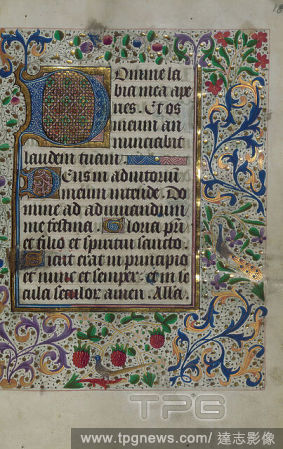 Domine la
bia mea ape
ries. Et os
meum an
nunciabit
laudem tuam.
Deus in adiutoriu
meum intende. Do
mine ad adiuvandum
me festina. Gloria patri
et filio et spiritui sancto.
Sicut erat in principio
et nunc et semper et in se
cula seculor amen. Alla
TPG
www.tpgnews.com/達志影像